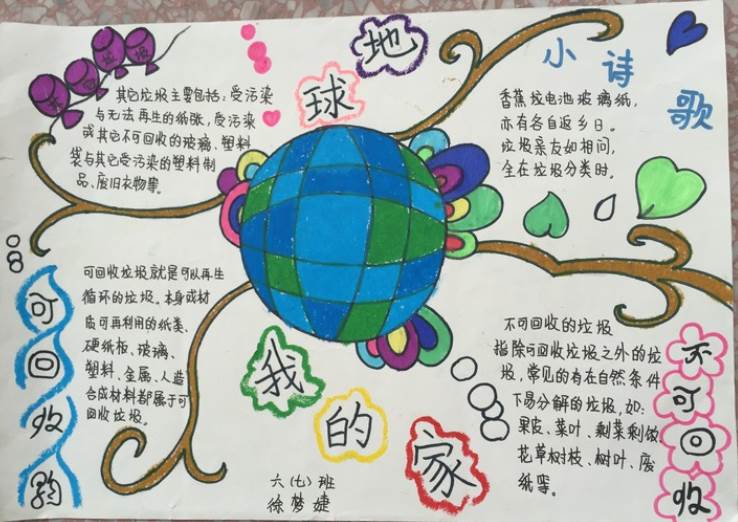 地球
我的家
小诗歌
其它垃圾主要包括:受污染
与无法再生的纸张,受污染
或其它不可回收的玻璃、塑料
袋与其它受污染的塑料制
品、废旧衣物等。
香蕉垃电池玻璃纸,
亦有各自返乡日。
垃圾亲友如相问,
全在垃圾分类时。
可回收
可回收垃圾就是可以再生
循环的垃圾。本身或材
质可再利用的纸类、
硬纸板、玻璃、
塑料、金属、人造
合成材料都属于可
回收垃圾。
不可回收
不可回收的垃圾
指除可回收垃圾之外的垃
圾,常见的有在自然条件
下易分解的垃圾,如:
果皮、菜叶、剩菜剩饭、
花草树枝、树叶、废
纸等。
六(七)班
徐梦婕